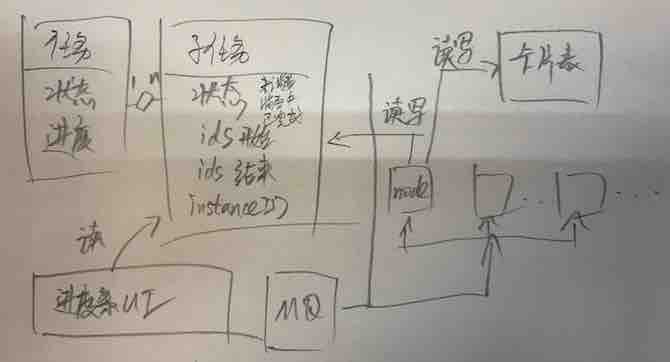 任务
状态
进度
1
n
子任务
状态
处理中
已完成
ids开始
ids结束
instanceID
读写
读写
卡片表
node
...
....
读
进度条UI
MQ